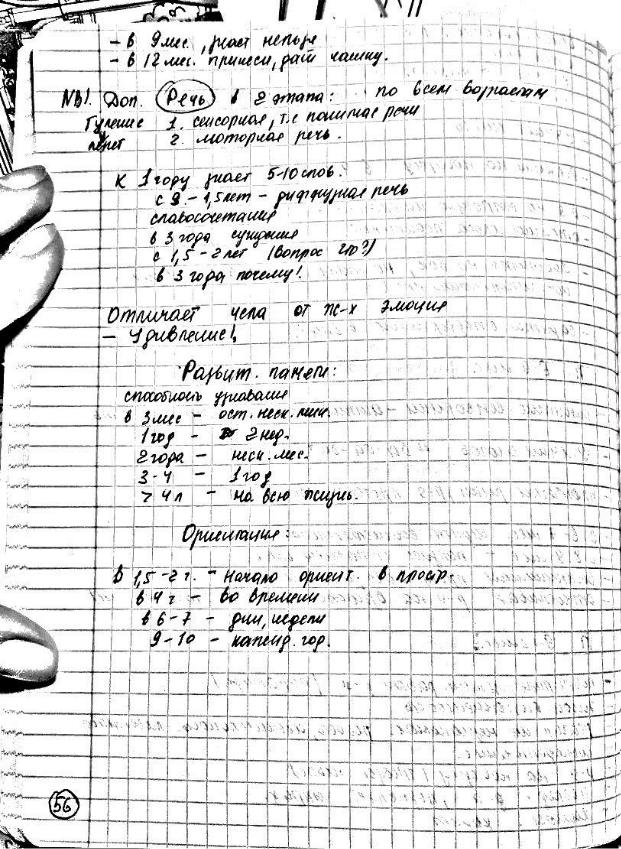 - в 9 мес., знает нельзя
- в 12 мес. принеси, дай чашку.
NB! Доп. Речь в 2 этапа: по всем возрастам
Гуление 1. сенсорная, т.е понимае речи
лепет 2. моторная речь.
К 1 году знает 5-10 слов.
с 9 - 1,5 лет - диффузная речь
славосочетания
в 3 года суждения
с 1,5 - 2 лет (вопрос что?)
в 3 года почему!
Отличает чела от ж-х эмоция
- Удивление!
Развит. памети:
способность узнавания
в 3 мес - ост. неск. мин.
1 год - 2 нед.
2 года - неск. мес.
3-4 - 1 год
> 4 л - на всю жизнь.
Ориентация:
В 1,5-2 г. - Начало ориент. в простр.
в 4 г - во времени
в 6-7 - дни, недели
9-10 - календ. год.
56